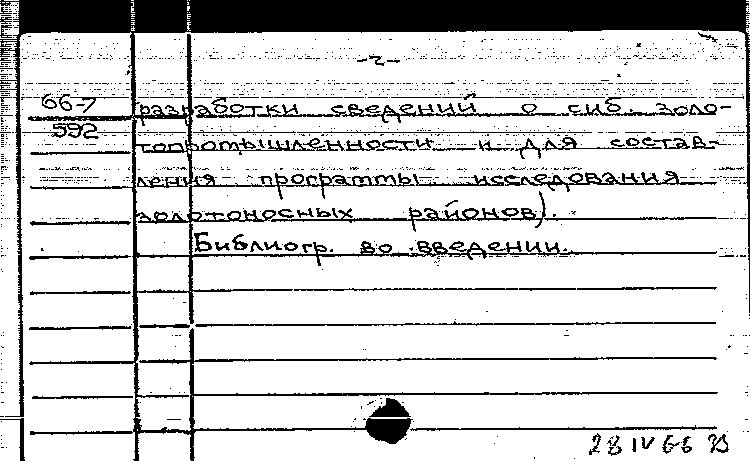 -2-
66-7 разработки сведений о сиб. золо-
592 топромышленности и для состав-
ления программы исследования
золотоносных районов).
Библиогр. во введении.
28 IV 66